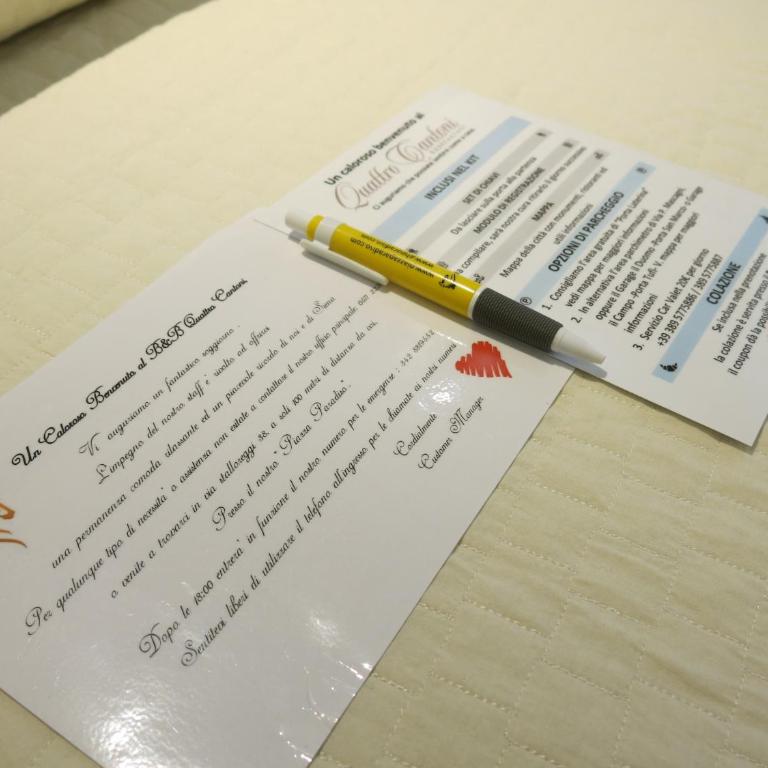 Un Caloroso Benvenuto al B&B Quattro Cantoni,
Vi auguriamo un fantastico soggiorno.
L'impegno del nostro staff e' rivolto ad offrirvi
una permanenza comoda rilassante ed un piacevole ricordo di noi e di Siena
Per qualunque tipo di necessita' o assistenza non esitate a contattare il nostro ufficio principale
o venite a trovarci in via stalloreggi 38, a soli 100 metri di distanza da voi.
Presso il nostro "Piazza Paradiso".
Dopo le 18:00 entrera' in funzione il nostro numero per le emergenze : 342
Sentitevi liberi di utilizzare il telefono all'ingresso per le chiamate ai nostri numeri.
Cordialmente
Customer Manager
www.piazzaparadiso.com
Un caloroso benvenuto al
Quattro Cantoni
Ci auguriamo che possiate sentirvi come a casa
INCLUSI NEL KIT
SET DI CHIAVI
Da lasciare sulla porta alla partenza
MODULO DI REGISTRAZIONE
Da compilare, sarà nostra cura ritirarlo il giorno successivo
MAPPA
Mappa della città con monumenti, ristoranti ed
utili informazioni
OPZIONI DI PARCHEGGIO
1. Consigliamo l'area gratuita di "Porta Laterina"
vedi mappa per maggiori informazioni
2. In alternativa l'area parcheggio di Via P. Mascagni,
oppure il Garage Il Duomo -Porta San Marco o Garage
il Campo -Porta Tufi- V. mappa per maggiori
informazioni
3. Servizio Car Valet 20€ per giorno
+39 389 5775886 / 389 5775987
COLAZIONE
Se inclusa nella prenotazione
la colazione è servita presso il
il coupon dà la possibilità